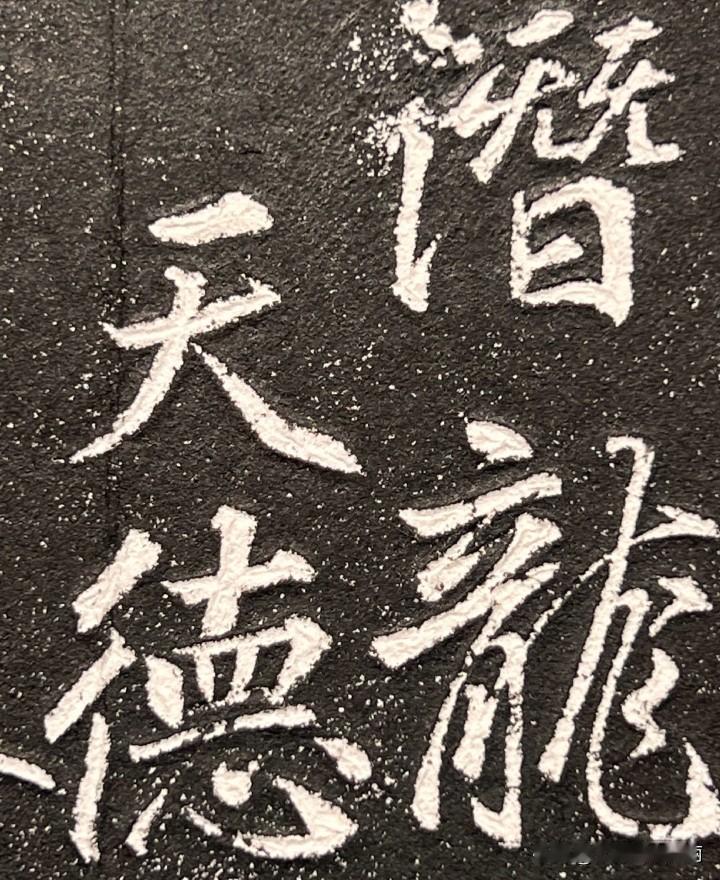 潛龍
天德